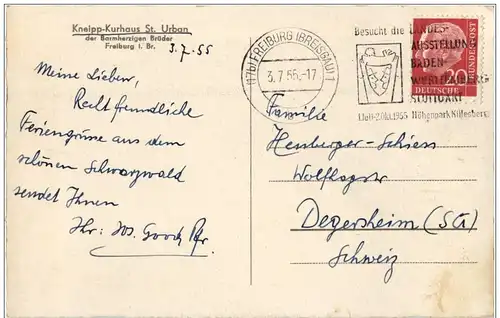 Kneipp-Kurhaus St. Urban
der Barmherzigen Brüder
Freiburg i. Br.
3.7.55
Meine Lieben,
Recht freundliche
Feriengrüsse aus dem
schönen Schwarzwald
sendet Ihnen
Ihr: Jos.
(17b) FREIBURG (BREISGAU) 1
3.7.55.-17
Besucht die LANDES-
AUSSTELLUNG
BADEN-
WÜRTTEMBERG
STUTTGART
Höhenpark Killesberg
DEUTSCHE BUNDESPOST
20
Familie
Henberger-Schiess
Degersheim (SG)
Schweiz